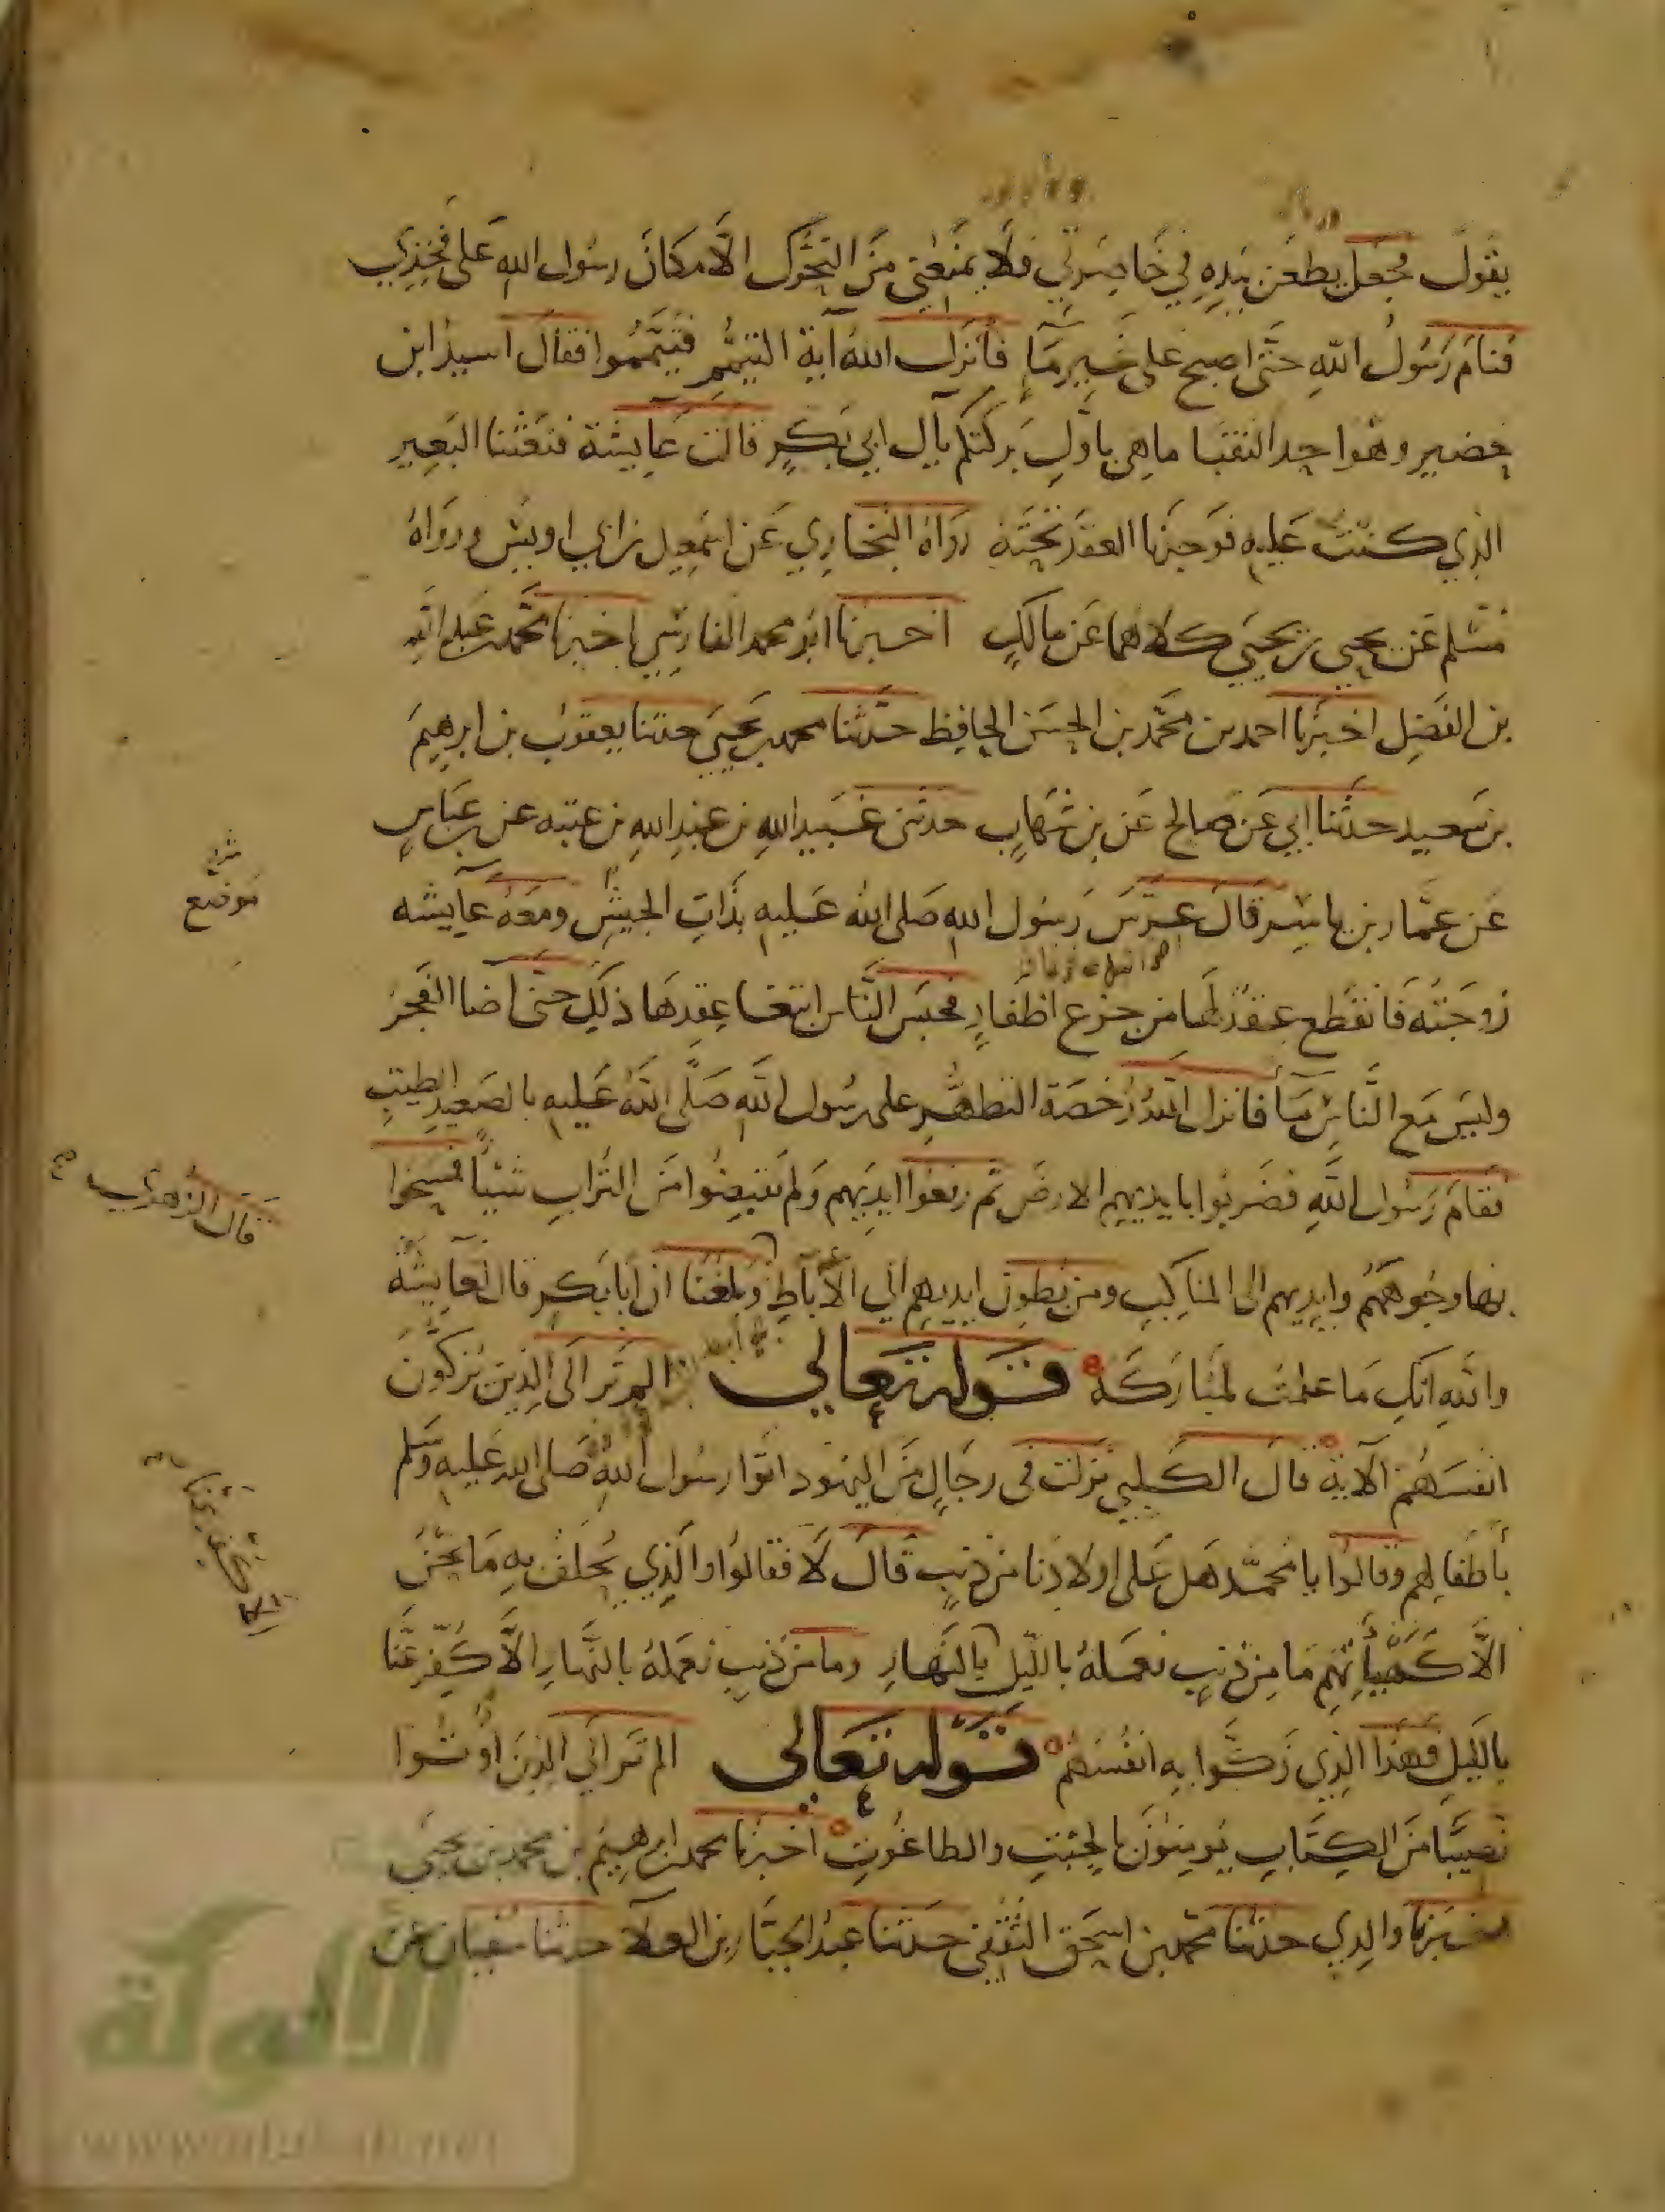 يقول فجعل يطعن بيده في خاصرتي فلا يمنعني من التحرك الا مكان رسول الله على فخذي
فنام رسول الله حتى اصبح على غير ما فانزل الله آية التيمم فتيمموا فقال اسيد ابن
حضير وهو احد النقبا ما هي باول بركتكم يآل ابي بكر قالت عايشة فبعثنا البعير
الذي كنت عليه فوجدنا العقد تحته رواه البخاري عن اسمعيل بن ابي اويس ورواه
مسلم عن يحيى بن يحيى كلاهما عن مالك اخبرنا ابو محمد الفارسي اخبرنا محمد بن عبد الله
بن الفضل اخبرنا احمد بن محمد بن الحسن الحافظ حدثنا محمد بن يحيى حدثنا يعقوب بن ابرهيم
بن سعيد حدثنا ابي عن صالح عن بن شهاب حدثني عبيد الله بن عبد الله بن عتبه عن بن عباس
عن عمار بن ياسر قال عرس رسول الله صلى الله عليه بذات الجيش ومعه عايشه
موضع
زوجته فانقطع عقد لها من جزع اظفار فحبس الناس ابتغا عقدها ذلك حتى اضا الفجر
وليس مع الناس مآ فانزل الله رخصة التطهر على رسول الله صلى الله عليه بالصعيد الطيب
فقام رسول الله فضربوا بايديهم الارض ثم رفعوا ايديهم ولم يقبضوا من التراب شيئا فمسحوا
قال الزهري
بها وجوههم وايديهم الى المناكب ومن بطون ايديهم الي الآباط وبلغنا ان ابا بكر قال لعايشة
والله انك ما علمت لمباركة قوله تعالي الم تر الى الذين يزكون
انفسهم الآية قال الكلبي نزلت في رجال من اليهود اتوا رسول الله صلى الله عليه وسلم
باطفالهم وقالوا يا محمد هل على اولادنا من ذنب قال لا فقالوا والذي يحلف به ما نحن
الا كهيأتهم ما من ذنب نعمله بالليل بالنهار وما من ذنب نعمله بالنهار الا كفر عنا
بالليل فهذا الذي زكوا به انفسهم قوله تعالى الم تر الي الذين اوتوا
نصيبا من الكتاب يومنون بالجبت والطاغوت اخبرنا محمد بن ابرهيم بن محمد بن يحيى
اخبرنا والدي حدثنا محمد بن اسحق الثقفي حدثنا عبد الجبار بن العلآ حدثنا سفيان عن
الألوكة
www.alukah.net